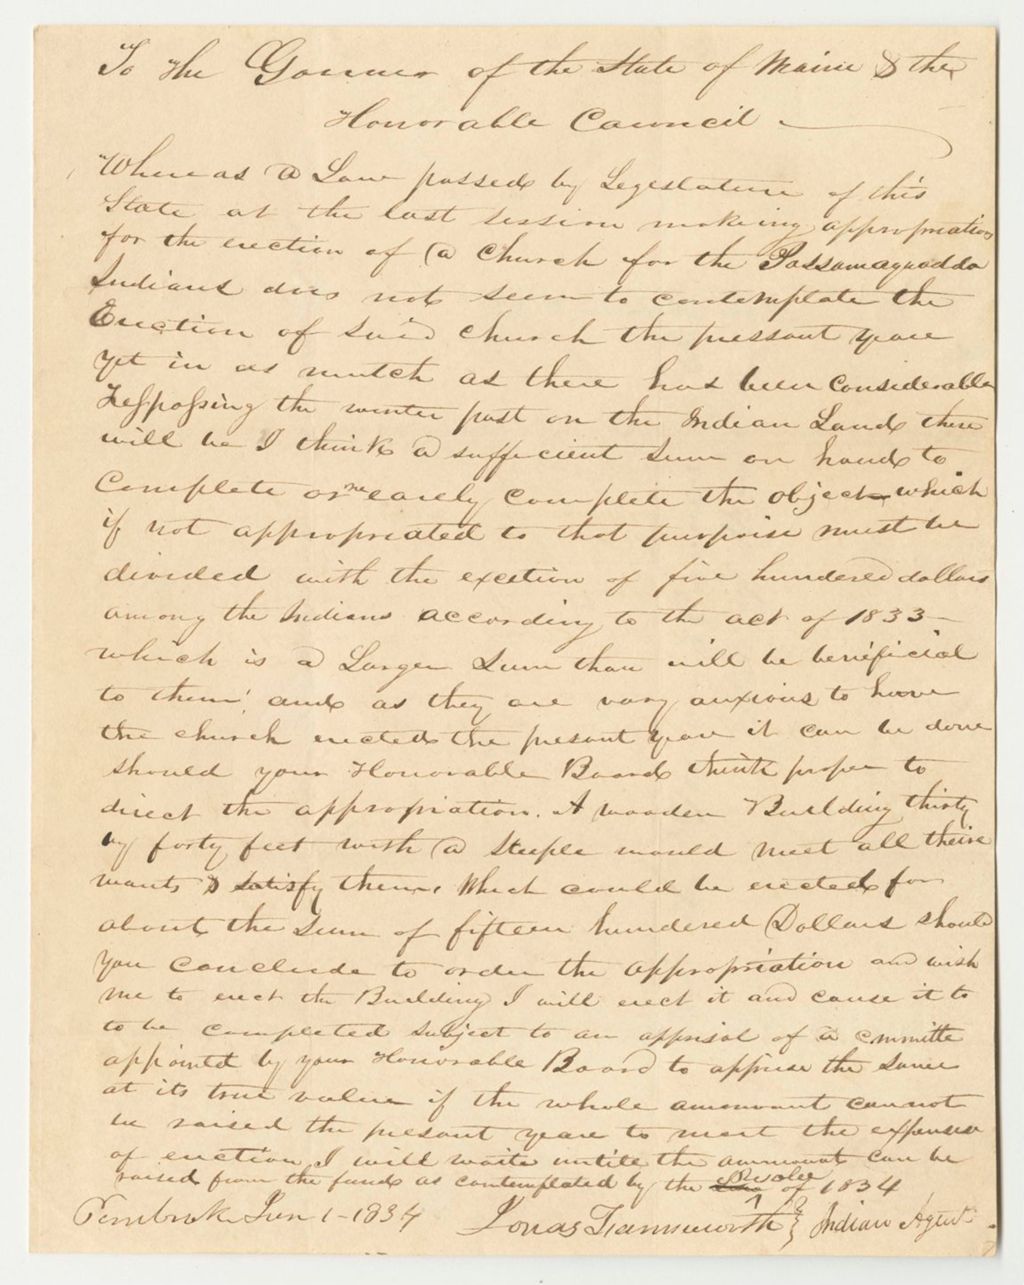 To the Gouner of the State of Maine & the
Honorable Council
Whereas a Law passed by Legeslature of this
State at the last session makeing appropriation
for the erection of a Church for the Passamaquodda
Indians does not seem to contemplate the
Erection of said church the pressant yeare
yet in as mutch as there has been considerable
Tresspassing the winter past on the Indian Land there
will be I think a sufficient sum on hand to
Complete or nearely complete the object which
if not appropriated to that purpoise must be
divided with the excetion of five hundered dollars
among the Indians according to the act of 1833
which is a Larger Sum than will be benificial
to them and as they are vary anxious to have
the church erected the present yeare it can be done
should your Honorable Board think proper to
direct the appropriation. A wooden Building thirty
by forty feet with a steeple would meet all theire
wants & satisfy them, Which could be erected for
about the Sum of fifteen hundered Dollars should
you conclude to order the appropriation and wish
me to erect the Building I will erect it and cause it to
to be completed subject to an apprisal of a cmmitte
appointd by your Honorable Board to apprise the same
at its true value if the whole ammount cannot
be raised the present yeare to meet the expense
of erection I will waite untile the ammount can be
raised from the funds as contemplated by the Resolve of 1834
Pembroke Jun 1-1834 Jonas Farnsworth } Indian Agent